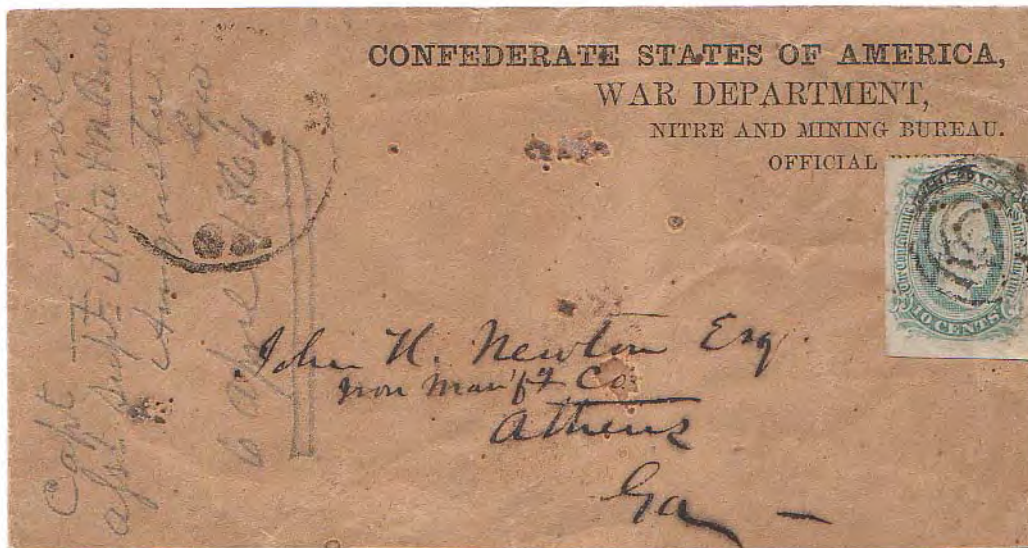 CONFEDERATE STATES OF AMERICA,
WAR DEPARTMENT,
NITRE AND MINING BUREAU.
OFFICIAL
10 CENTS
John H. Newton Esq.
Iron Man'f'g Co.
Athens
Ga —
Capt
Asst Supt Nitre
6 April 1864